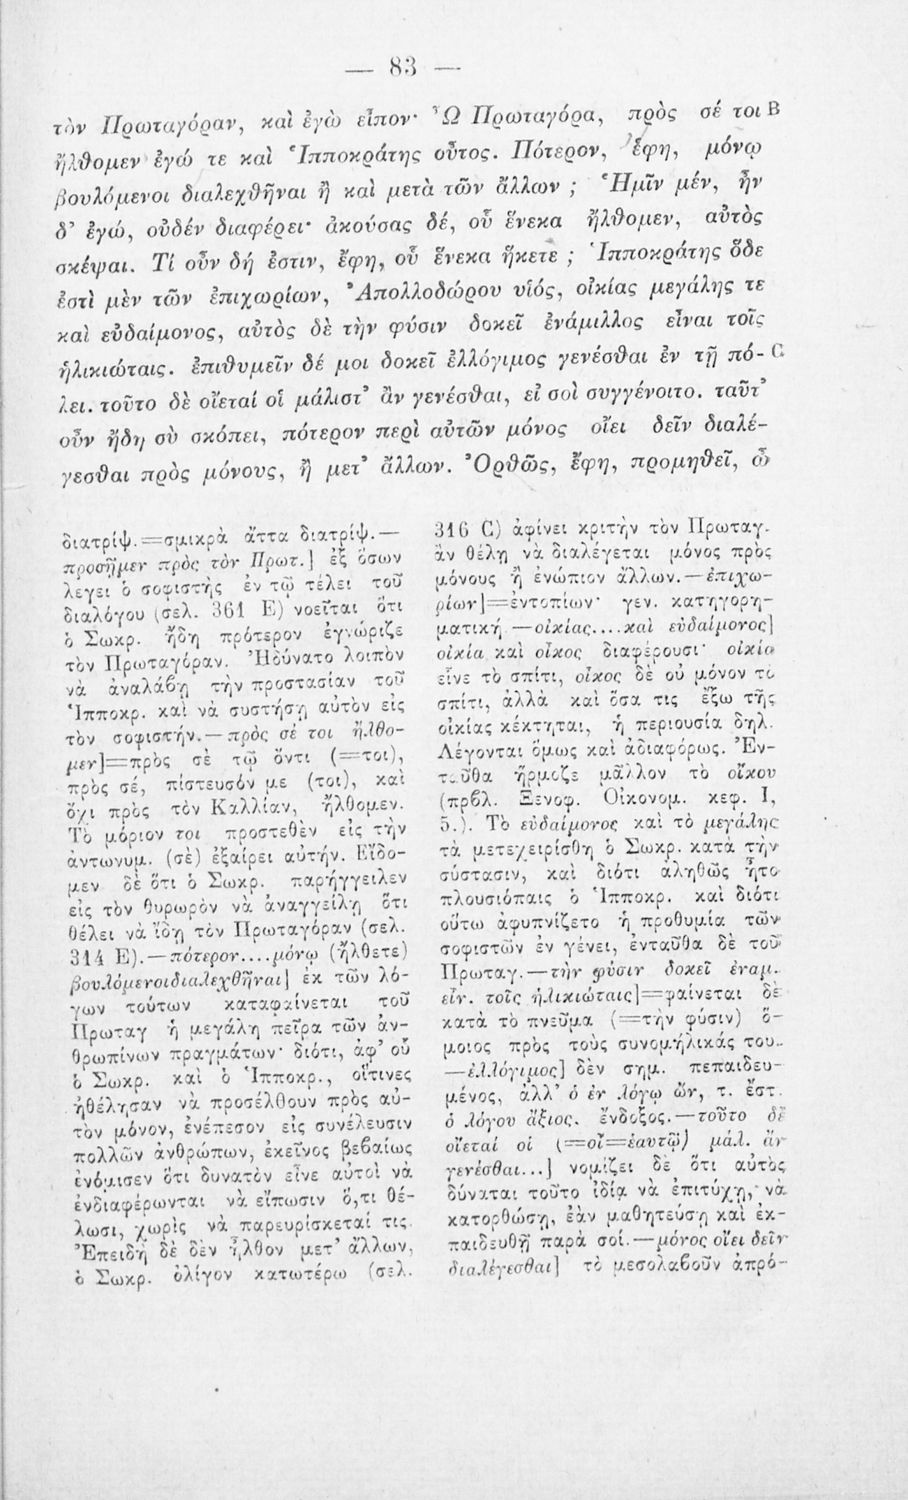 — 83 —
τὸν Πρωταγόραν, καὶ ἐγὼ εἶπον· Ὦ Πρωταγόρα, πρὸς σέ τοι B
ἤλθομεν ἐγώ τε καὶ Ἱπποκράτης οὗτος. Πότερον, ἔφη, μόνῳ
βουλόμενοι διαλεχθῆναι ἢ καὶ μετὰ τῶν ἄλλων ; Ἡμῖν μέν, ἦν
δ’ ἐγώ, οὐδέν διαφέρει· ἀκούσας δέ, οὗ ἕνεκα ἤλθομεν, αὐτὸς
σκέψαι. Τί οὖν δή ἐστιν, ἔφη, οὗ ἕνεκα ἥκετε ; Ἱπποκράτης ὅδε
ἐστὶ μὲν τῶν ἐπιχωρίων, Ἀπολλοδώρου υἱός, οἰκίας μεγάλης τε
καὶ εὐδαίμονος, αὐτὸς δὲ τὴν φύσιν δοκεῖ ἐνάμιλλος εἶναι τοῖς
ἡλικιώταις. ἐπιθυμεῖν δέ μοι δοκεῖ ἐλλόγιμος γενέσθαι ἐν τῇ πό- C
λει. τοῦτο δὲ οἴεταί οἱ μάλιστ’ ἂν γενέσθαι, εἰ σοὶ συγγένοιτο. ταῦτ’
οὖν ἤδη σὺ σκόπει, πότερον περὶ αὐτῶν μόνος οἴει δεῖν διαλέ-
γεσθαι πρὸς μόνους, ἢ μετ’ ἄλλων. Ὀρθῶς, ἔφη, προμηθεῖ, ὦ
διατρίψ.=σμικρὰ ἄττα διατρίψ.—
προσῇμεν πρὸς τὸν Πρωτ.] ἐξ ὅσων
λέγει ὁ σοφιστὴς ἐν τῷ τέλει τοῦ
διαλόγου (σελ. 361 E) νοεῖται ὅτι
ὁ Σωκρ. ἤδη πρότερον ἐγνώριζε
τὸν Πρωταγόραν. Ἠδύνατο λοιπὸν
νὰ ἀναλάβῃ τὴν προστασίαν τοῦ
Ἱπποκρ. καὶ νὰ συστήσῃ αὐτὸν εἰς
τὸν σοφιστήν.—πρὸς σέ τοι ἤλθο-
μεν]=πρὸς σὲ τῷ ὄντι (=τοι),
πρὸς σέ, πίστευσόν με (τοι), καὶ
ὄχι πρὸς τὸν Καλλίαν, ἤλθομεν.
Τὸ μόριον τοι προστεθὲν εἰς τὴν
ἀντωνυμ. (σὲ) ἐξαίρει αὐτήν. Εἴδο-
μεν δὲ ὅτι ὁ Σωκρ. παρήγγειλεν
εἰς τὸν θυρωρὸν νὰ ἀναγγείλῃ ὅτι
θέλει νὰ ἴδῃ τὸν Πρωταγόραν (σελ.
314 E).—πότερον....μόνῳ (ἤλθετε)
βουλόμενοι διαλεχθῆναι] ἐκ τῶν λό-
γων τούτων καταφαίνεται τοῦ
Πρωταγ ἡ μεγάλη πεῖρα τῶν ἀν-
θρωπίνων πραγμάτων· διότι, ἀφ’ οὗ
ὁ Σωκρ. καὶ ὁ Ἱπποκρ., οἵτινες
ἠθέλησαν νὰ προσέλθουν πρὸς αὐ-
τὸν μόνον, ἐνέπεσον εἰς συνέλευσιν
πολλῶν ἀνθρώπων, ἐκεῖνος βεβαίως
ἐνόμισεν ὅτι δυνατὸν εἶνε αὐτοὶ νὰ
ἐνδιαφέρωνται νὰ εἴπωσιν ὅ,τι θέ-
λωσι, χωρὶς νὰ παρευρίσκεταί τις
Ἐπειδὴ δὲ δὲν ἦλθον μετ’ ἄλλων,
ὁ Σωκρ. ὀλίγον κατωτέρω (σελ.
316 C) ἀφίνει κριτὴν τὸν Πρωταγ.
ἂν θέλῃ νὰ διαλέγεται μόνος πρὸς
μόνους ἢ ἐνώπιον ἄλλων.—ἐπιχω-
ρίων]=ἐντοπίων· γεν. κατηγορη-
ματική.—οἰκίας....καὶ εὐδαίμονος]
οἰκία καὶ οἶκος διαφέρουσι· οἰκία
εἶνε τὸ σπίτι, οἶκος δὲ οὐ μόνον τὸ
σπίτι, ἀλλὰ καὶ ὅσα τις ἔξω τῆς
οἰκίας κέκτηται, ἡ περιουσία δηλ.
Λέγονται ὅμως καὶ ἀδιαφόρως. Ἐν-
ταῦθα ἥρμοζε μᾶλλον τὸ οἴκου
(πρβλ. Ξενοφ. Οἰκονομ. κεφ. I,
5.). Τὸ εὐδαίμονος καὶ τὸ μεγάλης
τὰ μετεχειρίσθη ὁ Σωκρ. κατὰ τὴν
σύστασιν, καὶ διότι ἀληθῶς ἦτο
πλουσιόπαις ὁ Ἱπποκρ. καὶ διότι
οὕτω ἀφυπνίζετο ἡ προθυμία τῶν
σοφιστῶν ἐν γένει, ἐνταῦθα δὲ τοῦ
Πρωταγ.—τὴν φύσιν δοκεῖ ἐναμ.
εἶν. τοῖς ἡλικιώταις]=φαίνεται δὲ
κατὰ τὸ πνεῦμα (=τὴν φύσιν) ὅ-
μοιος πρὸς τοὺς συνομήλικάς του.
—ἐλλόγιμος] δὲν σημ. πεπαιδευ-
μένος, ἀλλ’ ὁ ἐν λόγῳ ὤν, τ. ἔστ.
ὁ λόγου ἄξιος, ἔνδοξος.—τοῦτο δὲ
οἴεταί οἱ (=οἷ=ἑαυτῷ) μάλ. ἂν
γενέσθαι...] νομίζει δὲ ὅτι αὐτὸς
δύναται τοῦτο ἰδίᾳ νὰ ἐπιτύχῃ, νὰ
κατορθώσῃ, ἐὰν μαθητεύσῃ καὶ ἐκ-
παιδευθῇ παρὰ σοί.—μόνος οἴει δεῖν
διαλέγεσθαι] τὸ μεσολαβοῦν ἀπρό-